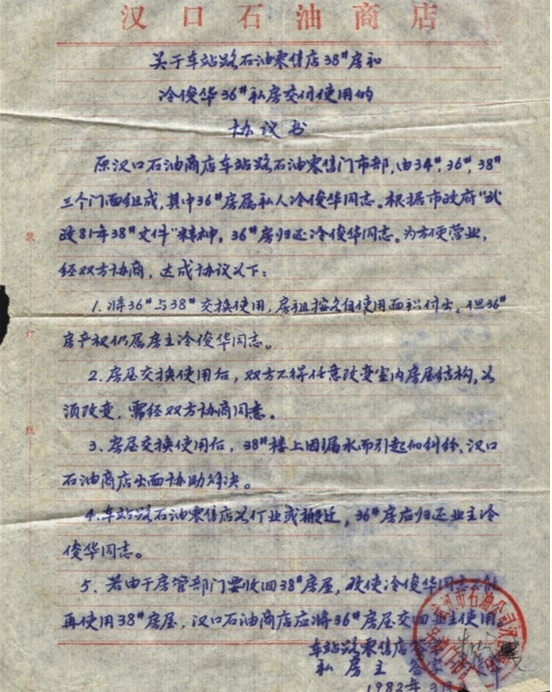 汉口石油商店
关于车站路石油零售店38#房和
冷俊华36#私房交付使用的
协议书
原汉口石油商店车站路石油零售门市部,由34#,36#,38#
三个门面组成,其中36#房属私人冷俊华同志。根据市政府"武
政81年38#文件"精神,36#房归还冷俊华同志。为方便营业,
经双方协商,达成协议以下:
1.将36#与38#交换使用,房租按各自使用面积付出。但36#
房产权仍属房主冷俊华同志。
2.房屋交换使用后,双方不得任意改变室内房屋结构,必
须改变,需经双方协商同意。
3.房屋交换使用后,38#楼上因漏水而引起的纠纷,汉口
石油商店出面协助解决。
4.车站路石油零售店关门或搬迁,36#房应归还业主冷
俊华同志。
5.若由于房管部门要收回38#房屋,致使冷俊华同志
再使用38#房屋,汉口石油商店应将36#房屋交回业主使用
车站路零售店
私房主
1982年
装
订
线